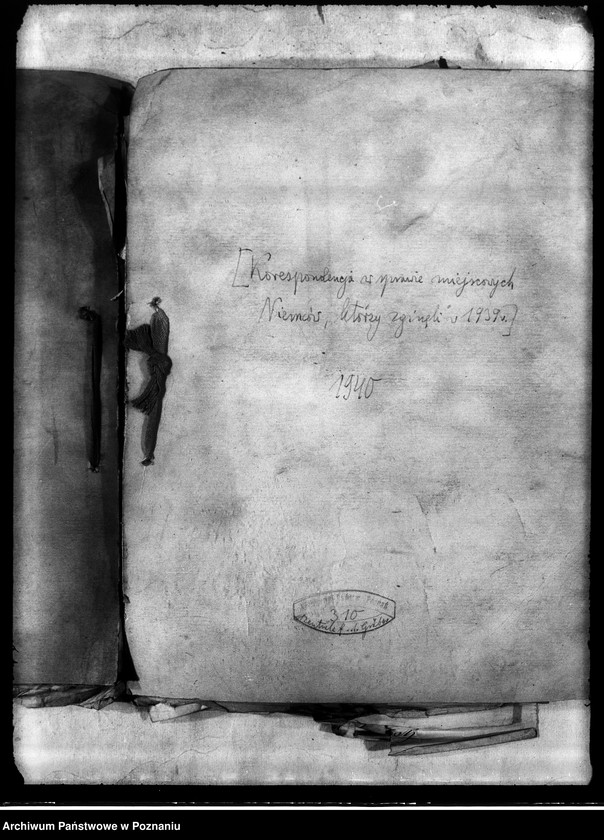 [Korespondencja w sprawie miejscowych
Niemców, którzy zginęli w 1939 r.]
1940
310
Zentrale f. d. Gräber
Archiwum Państwowe w Poznaniu